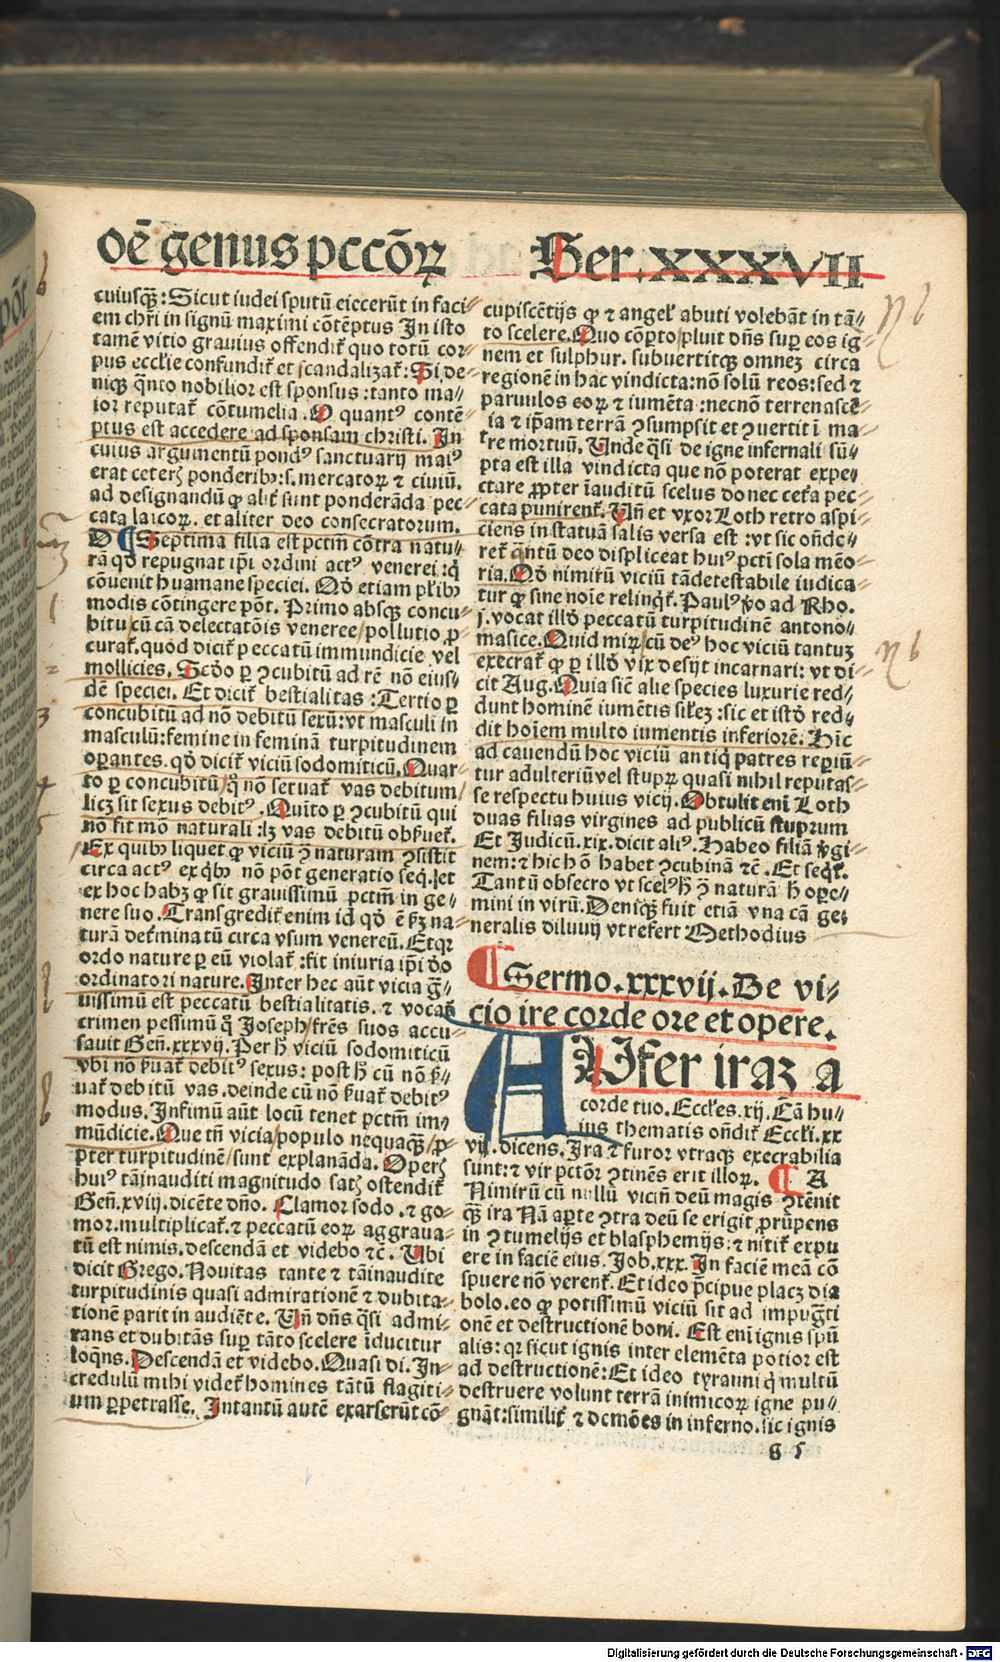 oē genus pccōꝝ Ser. XXXVII
cuiusqꝫ: Sicut iudei sputū eiccerūt in faci⸗
em chr̄i in signū maximi cōtēptus In isto
tamē vitio grauius offendit̄ quo totū cor⸗
pus eccl̄ie confundit̄ et scandalizat̄: Si de⸗
niqꝫ q̄nto nobilior est sponsus: tanto ma⸗
ior reputat̄ cōtumelia. O quantꝰ contē⸗
ptus est accedere ad sponsam christi. In
cuius argumentū pondꝰ sanctuarij maiꝰ
erat ceterꝭ ponderibꝫ: s. mercatoꝝ ⁊ ciuiū.
ad designandū ꝙ alit̄ sunt ponderāda pec⸗
cata laicoꝝ. et aliter deo consecratorum.
D ¶ Septima filia est pctm̄ cōtra natu⸗
rā qd̄ repugnat ip̄i ordini actꝰ venerei: q̄
cōuenit huamane speciei. Qd̄ etiam pl̄ibꝫ
modis cōtingere pōt. Primo absqꝫ concu⸗
bitu/cū cā delectatōis veneree/pollutio ꝓ⸗
curat̄. quod dicit̄ peccatū immundicie vel
mollicies. Scd̄o ꝑ ꝯcubitū ad rē nō eius⸗
dē speciei. Et dicit̄ bestialitas: Tertio ꝑ
concubitū ad nō debitū sexū: vt masculi in
masculū: femine in feminā turpitudinem
oꝑantes. qd̄ dicit̄ viciū sodomiticū. Quar⸗
to ꝑ concubitū/q̄ nō seruat̄ vas debitum/
licꝫ sit sexus debitꝰ. Quīto ꝑ ꝯcubitū qui
nō fit mō naturali: lꝫ vas debitū obẜuet̄.
Ex quibꝫ liquet ꝙ viciū ꝯ̄ naturam ꝯsistit
circa actꝰ ex qͥbꝫ nō pōt generatio seq̄. et
ex hoc habꝫ ꝙ sit grauissimū pctm̄ in ge⸗
nere suo. Transgredit̄ enim id qd̄ ē ẜꝫ na⸗
turā det̄minatū circa vsum venereū. Etqꝛ
ordo nature ꝑ eū violat̄: fit iniuria ip̄i deo
ordinatori nature. Inter hec aūt vicia g̃⸗
uissimū est peccatū bestialitatis. ⁊ vocat̄
crimen pessimū q̄ Joseph/fr̄es suos accu⸗
sauit Geñ. xxxvij. Per h̄ viciū sodomiticū
vbi nō ẜuat̄ debitꝰ sexus: post h̄ cū nō ẜ⸗
uat̄ debitū vas. deinde cū nō ẜuat̄ debitꝰ
modus. Infimū aūt locū tenet pctm̄ im⸗
mūdicie. Que tn̄ vicia/populo nequaqꝫ̄/ꝓ⸗
pter turpitudinē/sunt explanāda. Operꝭ
huiꝰ tāinauditi magnitudo satꝭ ostendit̄
Geñ. xviij. dicēte dño. Clamor sodo. ⁊ go⸗
mor. multiplicat̄. ⁊ peccatū eoꝝ aggraua⸗
tū est nimis. descendā et videbo ⁊c̄. Vbi
dicit Grego. Nouitas tante ⁊ tāinaudite
turpitudinis quasi admirationē ⁊ dubita⸗
tionē parit in audiēte. Vñ dñs q̄si admi⸗
rans et dubitās suꝑ tāto scelere īducitur
loq̄ns. Descendā et videbo. Quasi di. In⸗
credulū mihi videt̄ homines tātū flagiti⸗
um ꝑpetrasse. Intantū autē exarserūt cō⸗
cupiscētijs ꝙ ⁊ angel̄ abuti volebāt in tā⸗
to scelere. Quo cōꝑto/pluit dñs suꝑ eos ig⸗
nem et sulphur. subuertitqꝫ omneꝫ circa
regionē in hac vindicta: nō solū reos: sed ⁊
paruulos eoꝝ ⁊ iumēta: necnō terrenascē⸗
ia ⁊ ip̄am terrā ꝯsumpsit et ꝯuertit ī ma⸗
re mortuū. Vnde q̄si de igne infernali sū⸗
pta est illa vindicta que nō poterat expe⸗
ctare ꝓpter īauditū scelus donec cet̄a pec⸗
cata punirent̄. Vñ et vxor Loth retro aspi⸗
ciens in statuā salis versa est: vt sic oñde⸗
ret̄ q̄ntū deo displiceat huiꝰ pcti sola mēo⸗
ria. Qd̄ nimirū viciū tādetestabile iudica⸗
tur ꝙ sine noīe relinqͥt̄. Paulꝰ v̄o ad Rho.
j. vocat illd̄ peccatū turpitudinē antono⸗
masice. Quid miꝝ/cū deꝰ hoc viciū tantuꝫ
execrat̄ ꝙ ꝑ illd̄ vix desijt incarnari: vt di⸗
cit Aug. Quia sic̄ alie species luxurie red⸗
dunt hominē iumētis sil̄eꝫ: sic et istd̄ red⸗
dit hoīem multo iumentis inferiorē. Hic
ad cauendū hoc viciū antiq̄ patres reꝑiū⸗
tur adulteriū vel stupꝝ quasi nihil reputas⸗
se respectu huius vicij. Obtulit enī Loth
duas filias virgines ad publicū stuprum
Et Judicū. xix. dicit aliꝰ. Habeo filiā v̄gi⸗
nem: ⁊ hic hō habet ꝯcubinā ⁊c̄. Et seqͥt̄.
Tantū obsecro vt scelꝰ h̄ ꝯ̄ naturā h̄ oꝑe⸗
mini in virū. Deniqꝫ fuit etiā vna cā ge⸗
neralis diluuij vt refert Methodius
¶ Sermo. xxxvij. De vi⸗
cio ire corde ore et opere.
AUfer iraꝫ a
corde tuo. Eccl̄es. xij. Cā hu⸗
ius thematis oñdit̄ Eccl̄i. xx
vij. dicens. Ira ⁊ furor vtraqꝫ execrabilia
sunt: ⁊ vir pctōr ꝯtinēs erit illoꝝ. ¶ A
Nimirū cū nullū viciū deū magis ꝯtēnit
qꝫ̄ ira Nā aꝑte ꝯtra deū se erigit prūpens
in ꝯtumelijs et blasphemijs: ⁊ nitit̄ expu
ere in faciē eius. Job. xxx. In faciē meā cō
spuere nō verent̄. Et ideo p̄cipue placꝫ dia
bolo. eo ꝙ potissimū viciū sit ad impugt̃i
onē et destructionē boni. Est enī ignis spū
alis: qꝛ sicut ignis inter elemēta potior est
ad destructionē: Et ideo tyranni q̄ multū
destruere volunt terrā inimicoꝝ igne pu⸗
gnāt: similit̄ ⁊ demōes in inferno. sic ignis